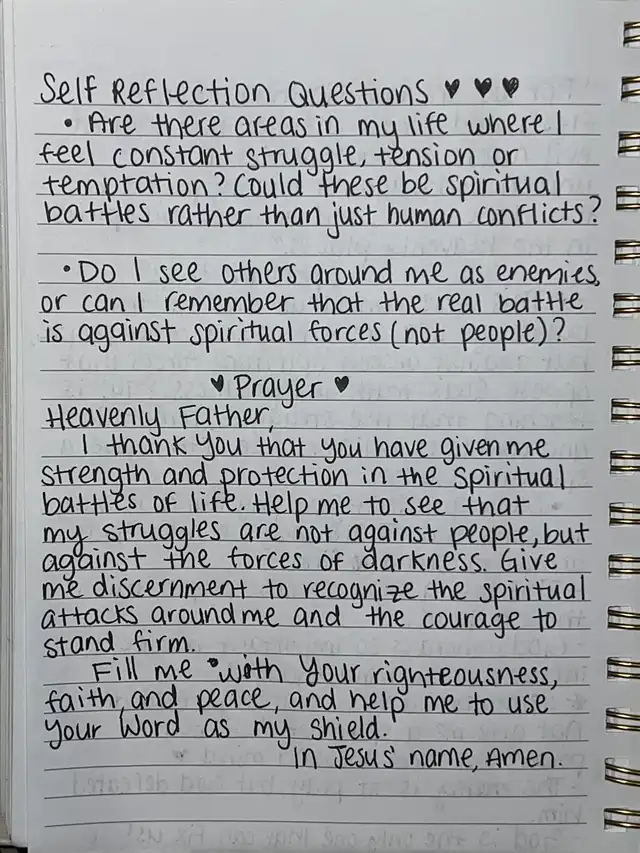 Self Reflection Questions ♥ ♥ ♥
• Are there areas in my life where I
feel constant struggle, tension or
temptation? Could these be spiritual
battles rather than just human conflicts?
• Do I see others around me as enemies,
or can I remember that the real battle
is against spiritual forces (not people)?
♥ Prayer ♥
Heavenly Father,
I thank You that you have given me
strength and protection in the spiritual
battles of life. Help me to see that
my struggles are not against people, but
against the forces of darkness. Give
me discernment to recognize the spiritual
attacks around me and the courage to
stand firm.
Fill me with Your righteousness,
faith, and peace, and help me to use
Your Word as my shield.
In Jesus' name, Amen.